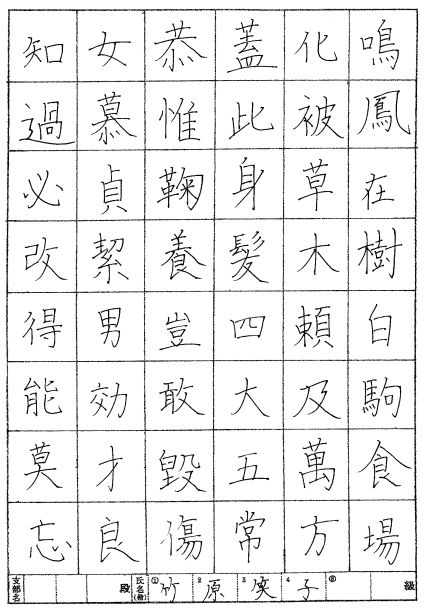 鳴鳳在樹白駒食場
化被草木頼及萬方
蓋此身髪四大五常
恭惟鞠養豈敢毀傷
女慕貞絜男効才良
知過必改得能莫忘
支部名 段 氏名 ①竹 2原 3笑 4子 ⑤ 級